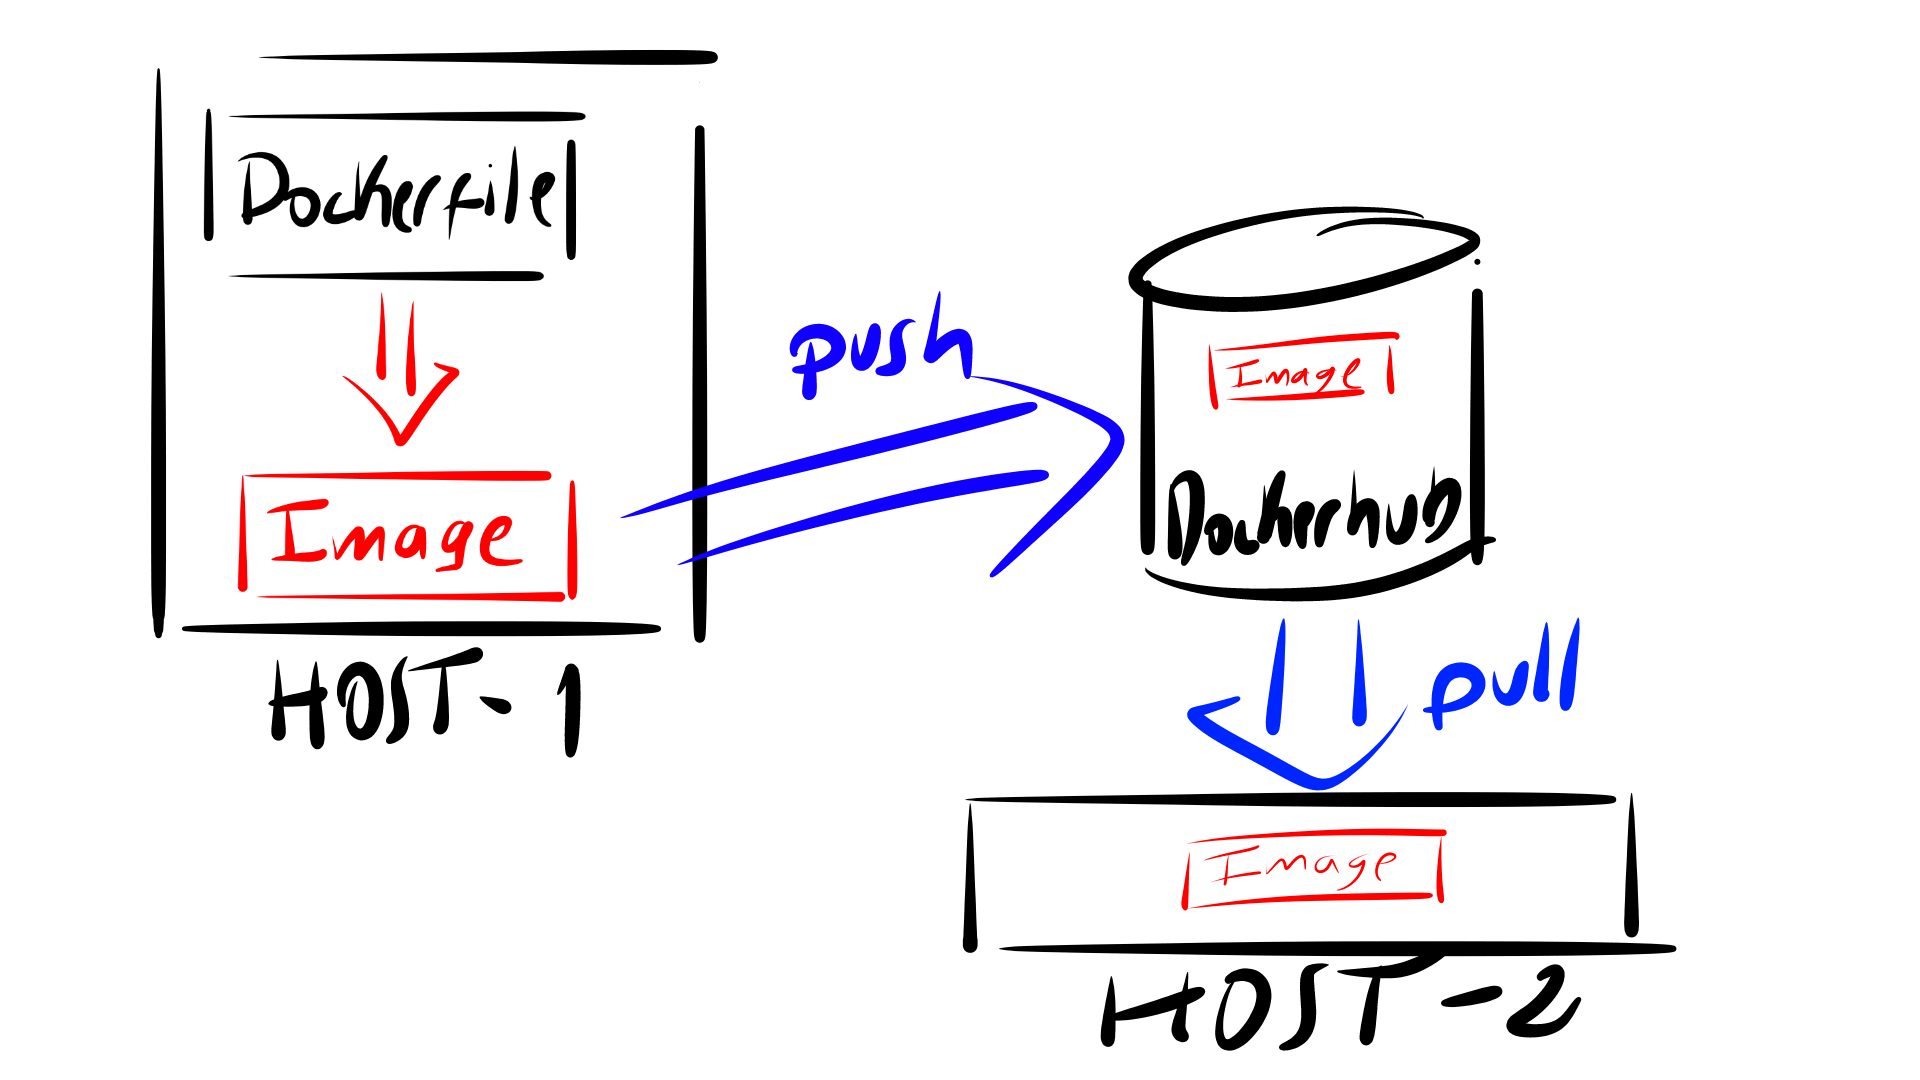 Dockerfile
Image
HOST-1
push
Image
Dockerhub
pull
Image
HOST-2